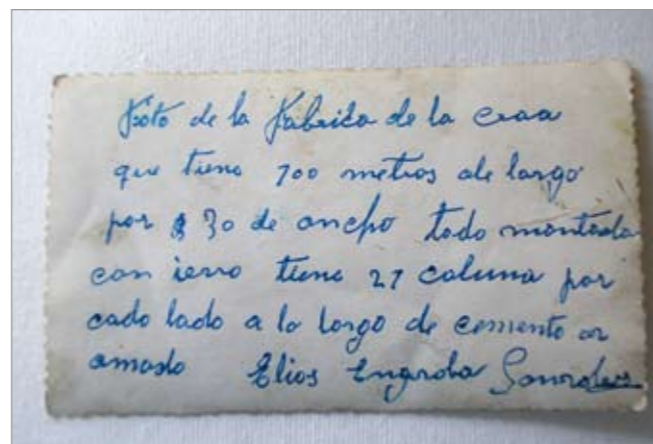 Foto de la Fabrica de la craa
que tiene 100 metros de largo
por 30 de ancho todo montado
con ierro tiene 27 coluna por
cado lado a lo largo de cemento ar
amado Elios Engroba